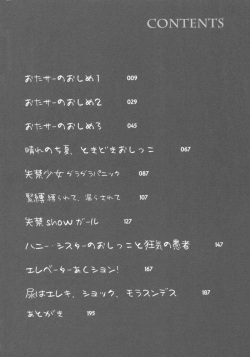 CONTENTS
おたサーのおしめ1 009
おたサーのおしめ2 029
おたサーのおしめ3 045
晴れのち夏、ときどきおしっこ 067
失禁少女グラグラパニック 087
緊縛 縛られて、漏らされて 107
失禁showガール 127
ハニー・シスターのおしっこと狂気の患者 147
エレベーターあくション! 167
尿はエレキ、ショック、モラスンデス 187
あとがき 195